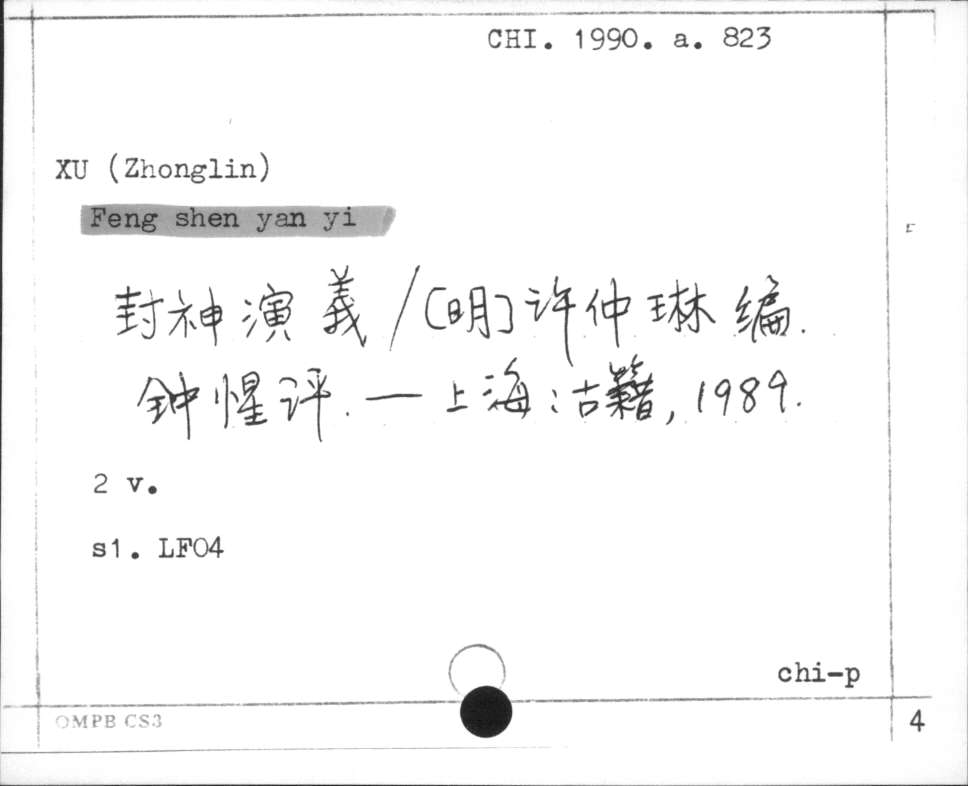 CHI. 1990. a. 823
XU (Zhonglin)
Feng shen yan yi
封神演義/[明]许仲琳编.
钟惺评. — 上海:古籍, 1989.
2 v.
s1. LF04
chi-p
OMPB CS3
4